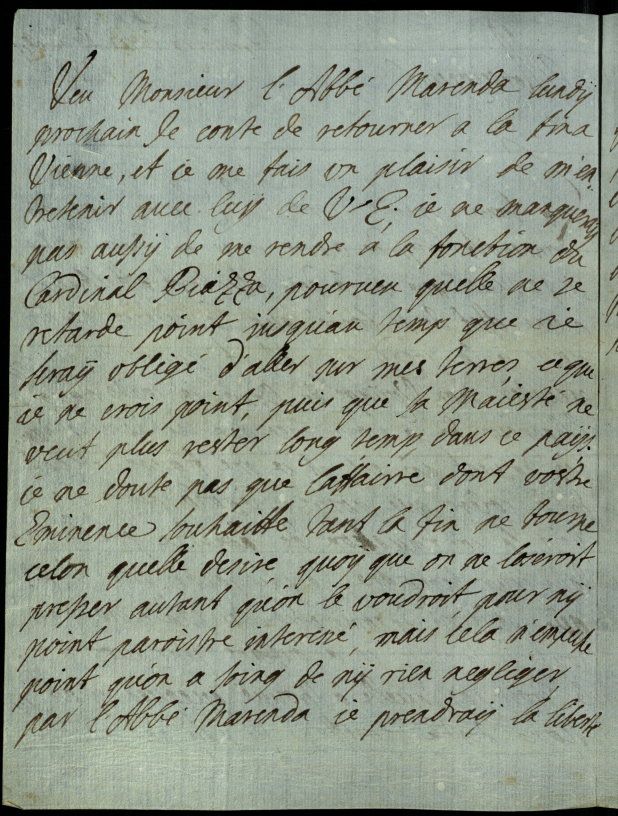 Veu Monsieur l'Abbé Marenda lundij
prochain je conte de retourner a la fin a
Vienne, et ie me fais un plaisir de m'en-
tretenir avec luij de V. E. ie ne manqueraij
pas aussij de me rendre à la fonction du
Cardinal Piazza, pourveu quelle ne se
retarde point jusquau temps que ie
seraij obligé d'aller sur mes terres, ce que
ie ne crois point, puis que sa Maiesté ne
veut plus rester long temps dans ce païjs.
ie ne doute pas que l'affairre dont vostre
Eminence souhaitte tant la fin ne tourne
celon quelle desire, quoij que on ne loseroit
presser autant qu'on le voudroit, pour nij
point paroistre interesé, mais cela n'empeche
point qu'on a soing de nij rien negliger
par l'Abbé Marenda ie prendraij la liberte